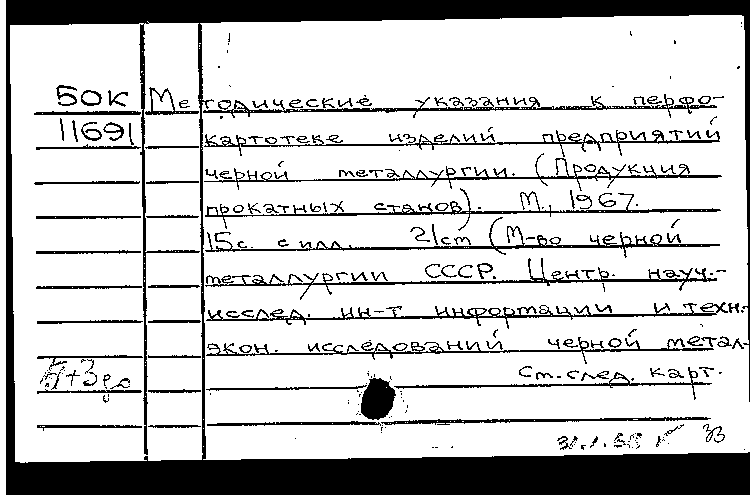 50К Методические указания к перфо-
11691 картотеке изделий предприятий
черной металлургии. (Продукция
прокатных станов). М., 1967.
15с. с илл. 21см (М-во черной
металлургии СССР. Центр. науч.-
исслед. ин-т информации и техн.-
экон. исследований черной метал-
См. след. карт.